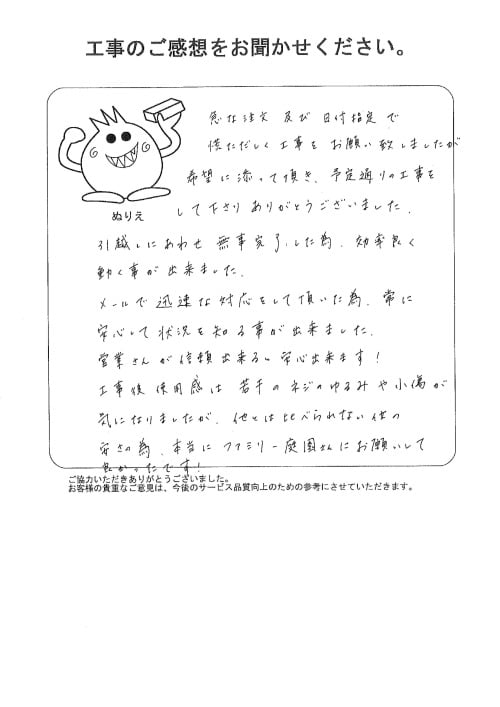 工事のご感想をお聞かせください。
急な注文 及び 日付指定で
慌ただしく工事をお願い致しましたが
希望に添って頂き、予定通りの工事を
して下さりありがとうございました。
ぬりえ
引越しにあわせ 無事完了した為、効率良く
動く事が出来ました。
メールで迅速な対応をして頂いた為、常に
安心して状況を知る事が出来ました。
営業さんが信頼出来るい安心出来ます!
工事後使用感は 若干のネジのゆるみや小傷が
気になりましたが、他とは比べられない位の
安さの為、本当にファミリー庭園さんにお願いして
良かったです!
ご協力いただきありがとうございました。
お客様の貴重なご意見は、今後のサービス品質向上のための参考にさせていただきます。